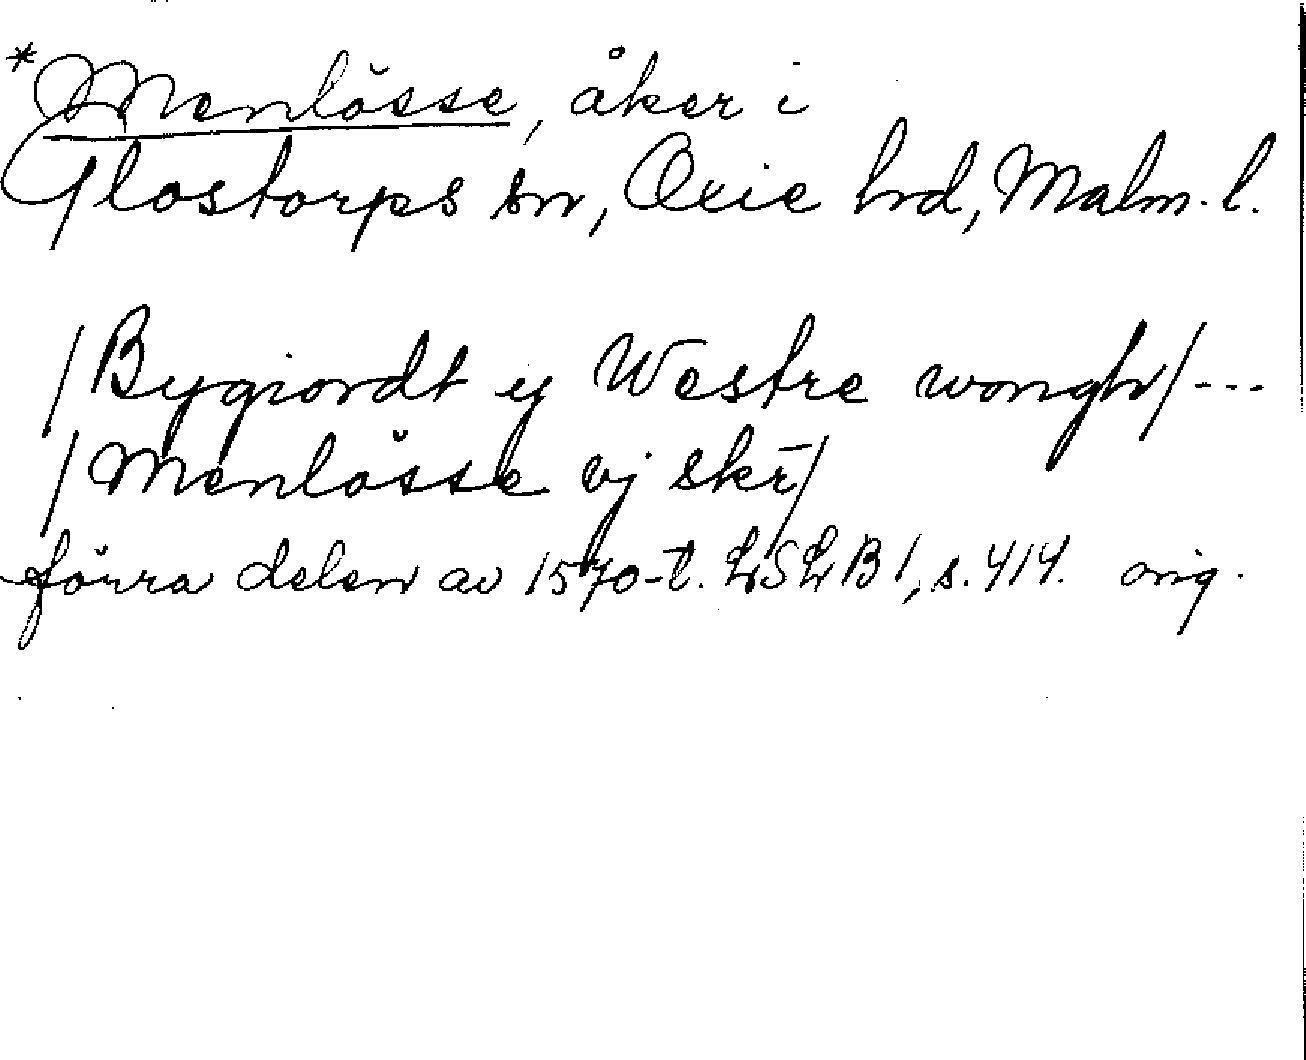 *Menlösse, åker i
Glostorps sn, Oxie hd, Malm. l.
/Bygiordt ij Westre wongh/---
/Menlösse vj skr̄/
förra delen av 1570-t. LSLB1, s. 414. orig.